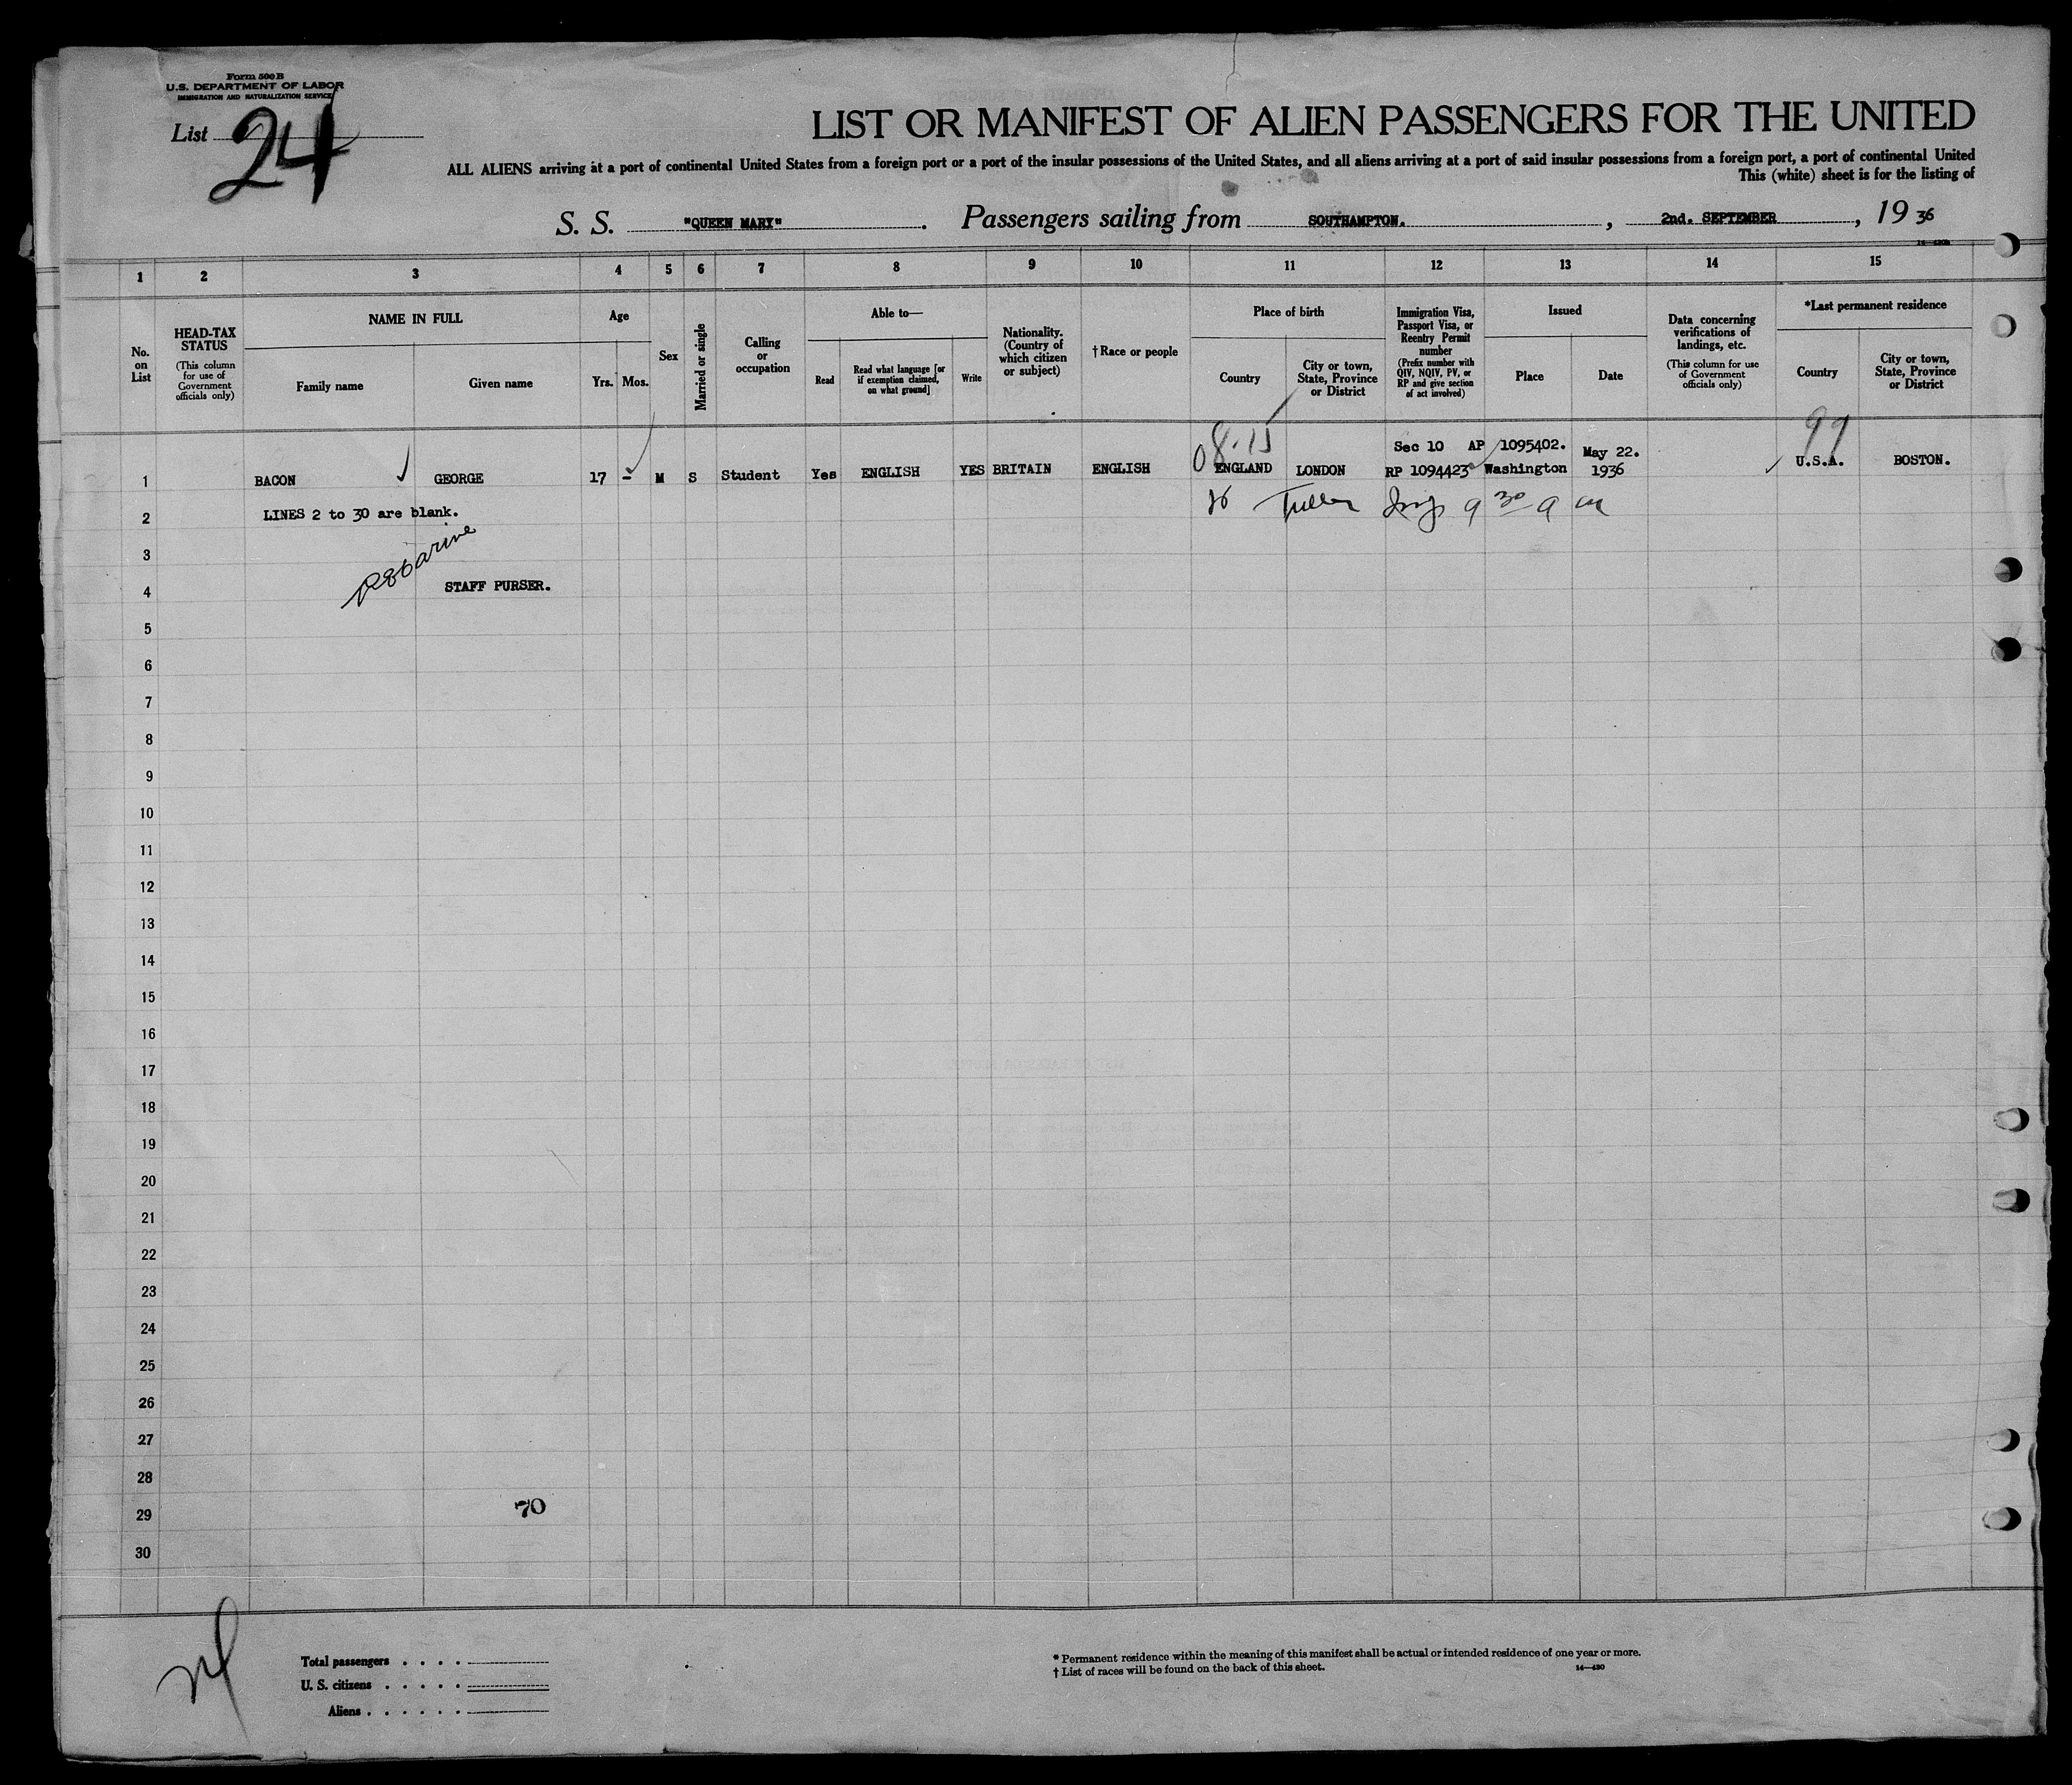 Form 500 B
U.S. DEPARTMENT OF LABOR
IMMIGRATION AND NATURALIZATION SERVICE
List 24
LIST OR MANIFEST OF ALIEN PASSENGERS FOR THE UNITED
ALL ALIENS arriving at a port of continental United States from a foreign port or a port of the insular possessions of the United States, and all aliens arriving at a port of said insular possessions from a foreign port, a port of continental United
This (white) sheet is for the listing of
S. S. "QUEEN MARY". Passengers sailing from SOUTHAMPTON., 2nd. SEPTEMBER, 19 36
1 2 3 4 5 6 7 8 9 10 11 12 13 14 15
No. on List
HEAD-TAX STATUS
(This column for use of Government officials only)
NAME IN FULL
Family name
Given name
Age
Yrs.
Mos.
Sex
Married or single
Calling or occupation
Able to—
Read
Read what language [or if exemption claimed, on what ground]
Write
Nationality. (Country of which citizen or subject)
†Race or people
Place of birth
Country
City or town, State, Province or District
Immigration Visa, Passport Visa, or Reentry Permit number
(Prefix number with QIV, NQIV, PV, or RP and give section of act involved)
Issued
Place
Date
Data concerning verifications of landings, etc.
(This column for use of Government officials only)
*Last permanent residence
Country
City or town, State, Province or District
08.15
Sec 10 AP 1095402. May 22. 99
1 BACON GEORGE 17 - M S Student Yes ENGLISH YES BRITAIN ENGLISH ENGLAND LONDON RP 1094423 Washington 1936 U.S.A. BOSTON.
2 LINES 2 to 30 are blank.
9 30 a m
3
4 STAFF PURSER.
5
6
7
8
9
10
11
12
13
14
15
16
17
18
19
20
21
22
23
24
25
26
27
28
29 70
30
Total passengers . . . .
U. S. citizens . . . . .
Aliens . . . . . .
* Permanent residence within the meaning of this manifest shall be actual or intended residence of one year or more.
† List of races will be found on the back of this sheet. 14—430